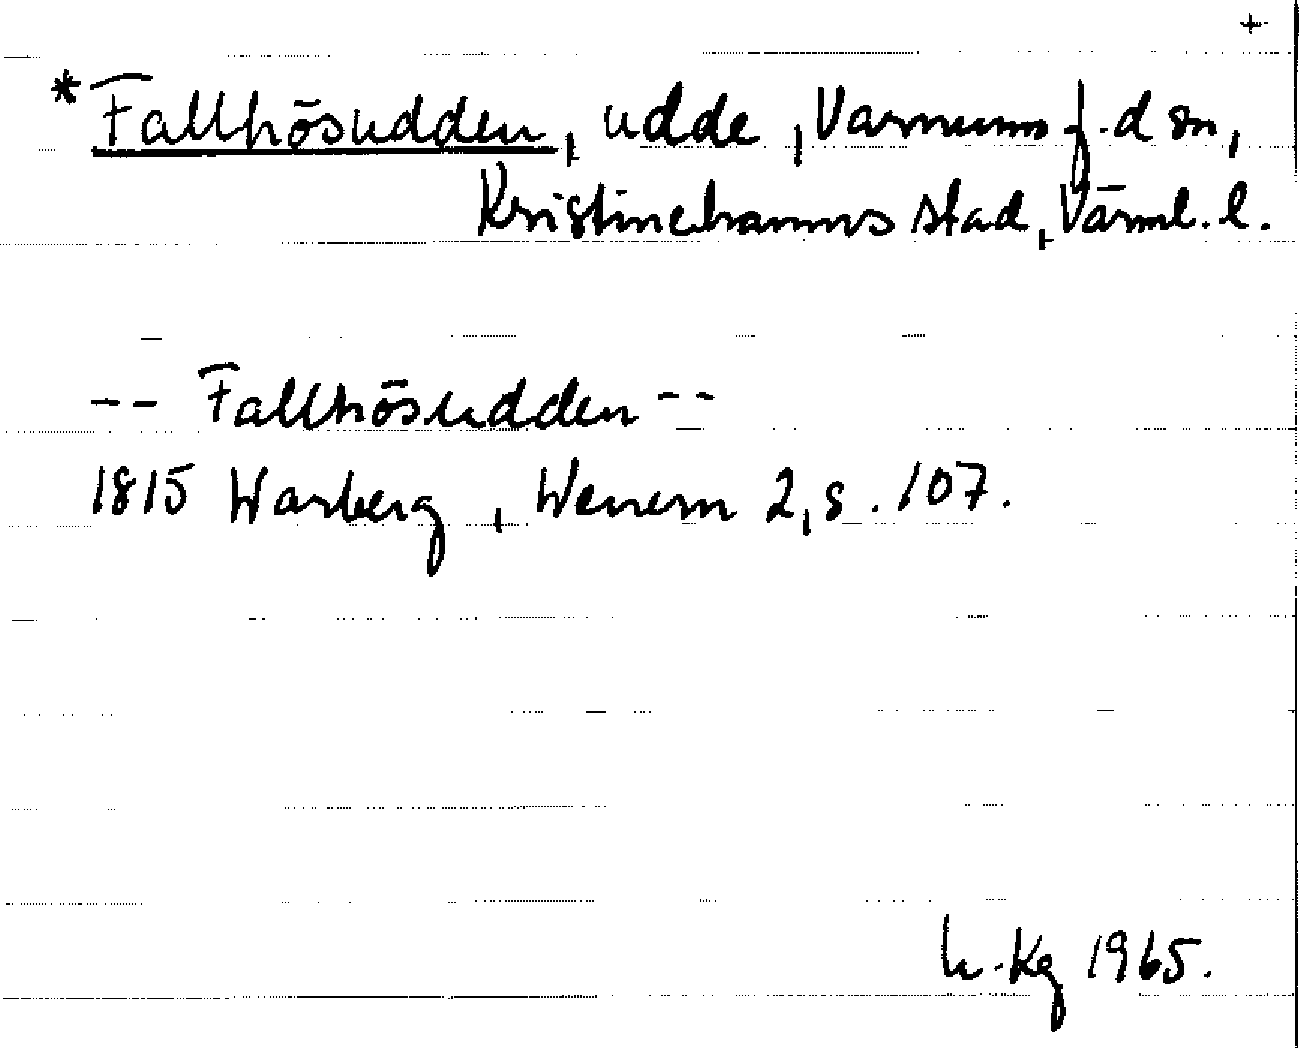 +
*Fallhösudden, udde, Varnums f.d sn,
Kristinehamns stad, Värml. l.
-- Fallhösudden --
1815 Warberg, Wenern 2, s. 107.
h.Kg 1965.